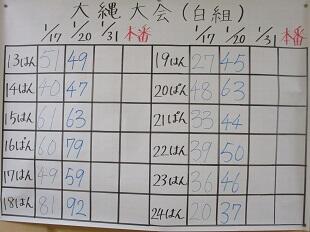 大縄大会(白組)
1/17 1/20 1/31 本番 1/17 1/20 1/31 本番
13はん 51 49 19はん 27 45
14はん 40 47 20ぱん 48 63
15はん 61 63 21ぱん 33 44
16ぱん 60 79 22はん 39 50
17はん 49 59 23はん 36 46
18ぱん 81 92 24はん 20 37